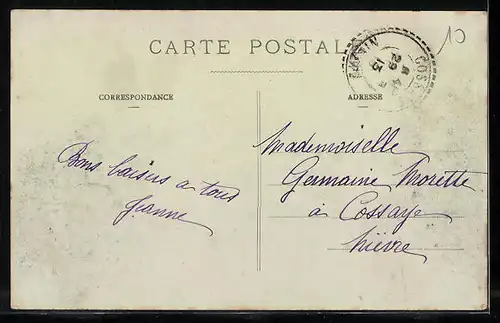 CARTE POSTALE
10
29
12
CORRESPONDANCE
ADRESSE
Bons baisers a tous
Jeanne
Mademoiselle
Germaine Morette
à Cossaye
Nièvre